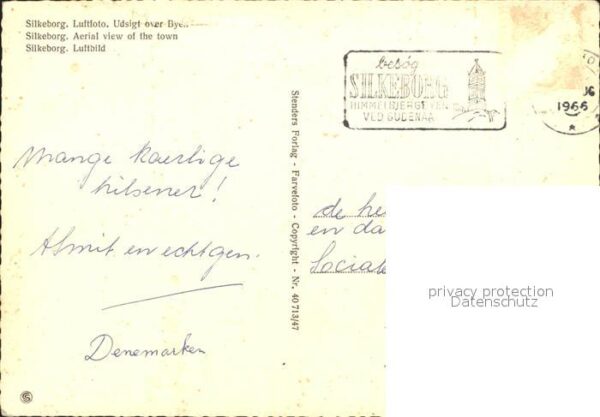 Silkeborg. Luftfoto. Udsigt over Byen.
Silkeborg. Aerial view of the town
Silkeborg. Luftbild
besøg
SILKEBORG
HIMMELBJERGEGNEN
VED GUDENAA
1966
Stenders Forlag - Farvefoto - Copyright - Nr. 40 713/47
Mange kaerlige
hilsener!
en echtgen.
Denemarken
de he
en da
Sociale
privacy protection
Datenschutz